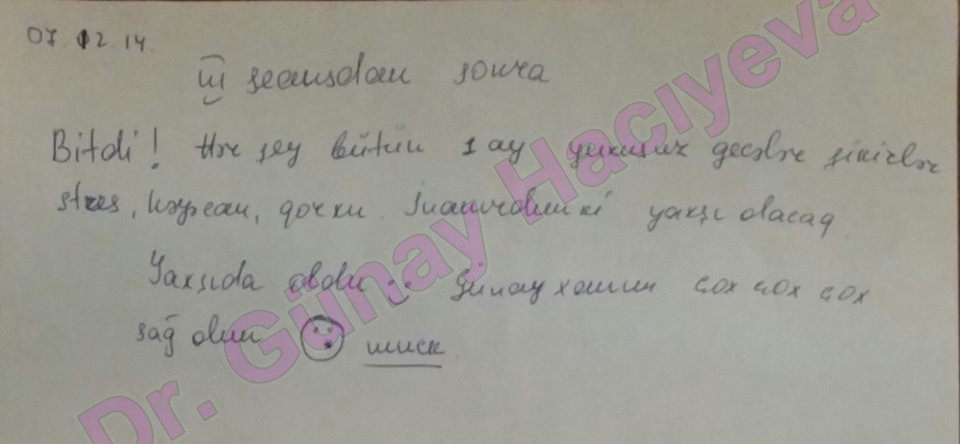 07.12.14.
üç seansdan sonra
Bitdi! Hər şey bütün 1 ay yuxusuz gecələr sinirlər
stres, həyəcan, qorxu. İnanırdımki yaxşı olacaq
Yaxşıda oldu :- Günay xanım çox çox çox
sağ olun
Dr. Günay Hacıyeva